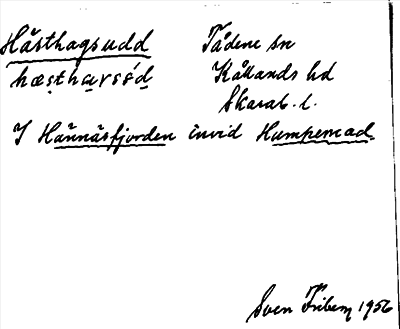 Hästhagsudd Tådene sn
hæsthavsód Kållands hd
Skarab. l.
I Hännäsfjorden invid Humpemad.
Sven Friberg 1956